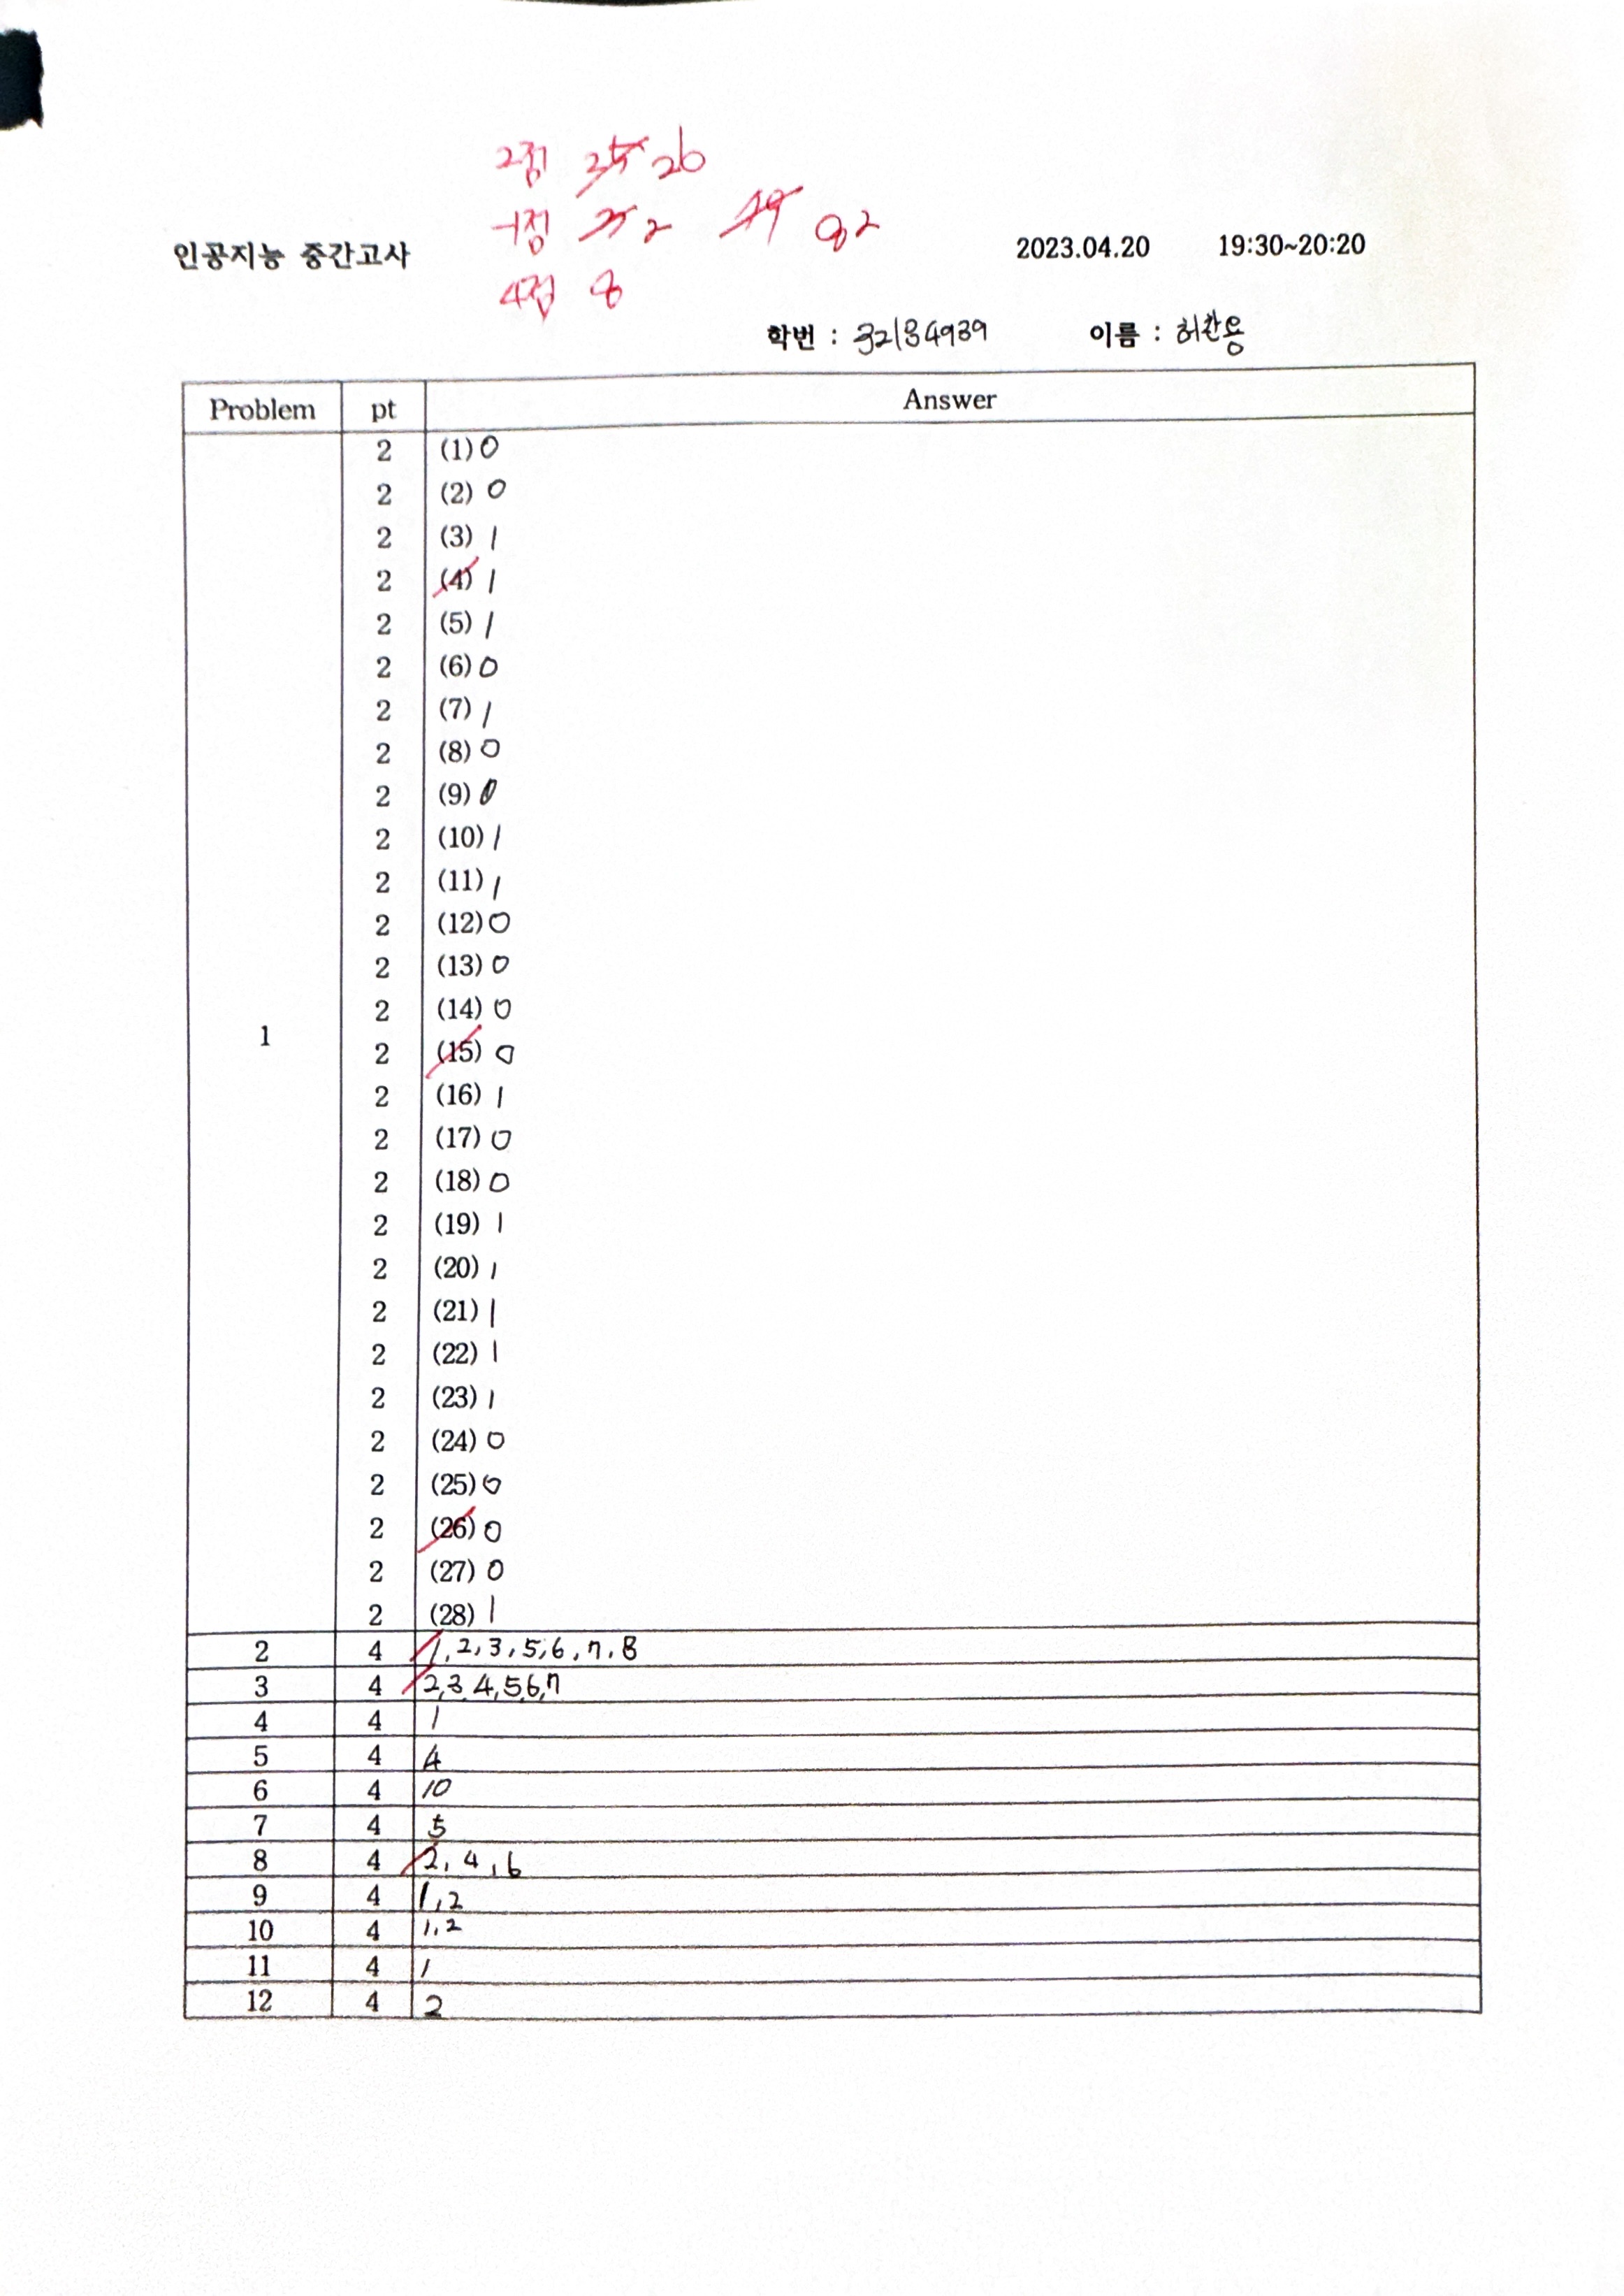 2점 25 26
-1점 3 2 49 82
4점 8
인공지능 중간고사 2023.04.20 19:30~20:20
학번 : 32184939 이름 : 허찬용
Problem pt Answer
2 (1) 0
2 (2) 0
2 (3) 1
2 (4) 1
2 (5) 1
2 (6) 0
2 (7) 1
2 (8) 0
2 (9) 0
2 (10) 1
2 (11) 1
2 (12) 0
2 (13) 0
2 (14) 0
1 2 (15) 0
2 (16) 1
2 (17) 0
2 (18) 0
2 (19) 1
2 (20) 1
2 (21) 1
2 (22) 1
2 (23) 1
2 (24) 0
2 (25) 0
2 (26) 0
2 (27) 0
2 (28) 1
2 4 1, 2, 3, 5, 6, 7, 8
3 4 2,3 4,5,6,7
4 4 1
5 4 4
6 4 10
7 4 5
8 4 2, 4, 6
9 4 1,2
10 4 1,2
11 4 1
12 4 2